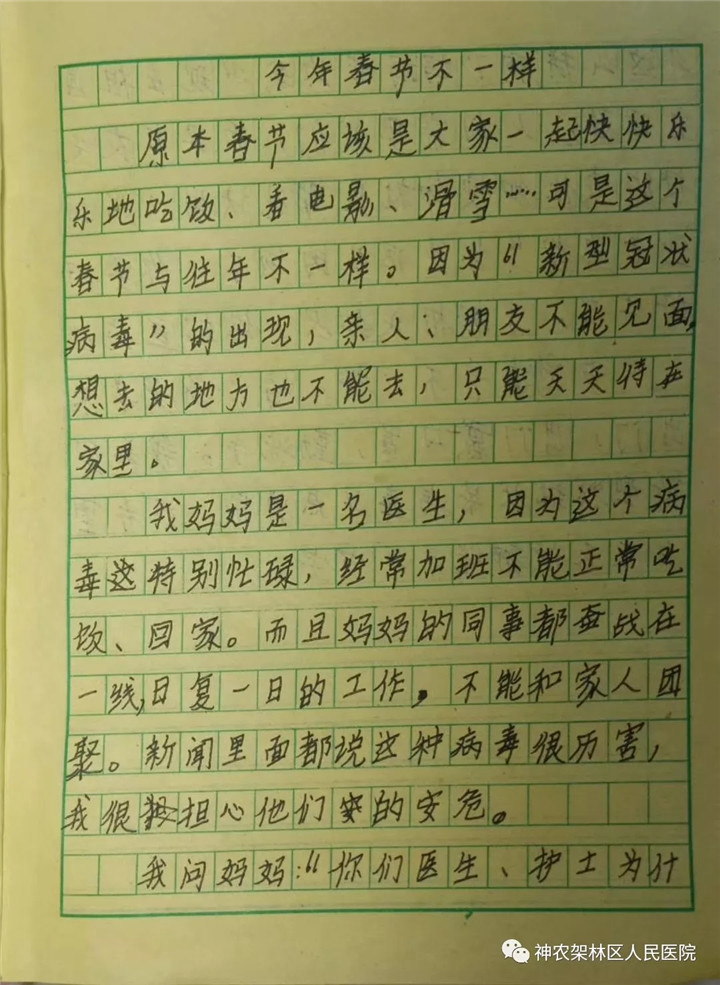 今年春节不一样
原本春节应该是大家一起快快乐
乐地吃饭、看电影、滑雪……可是这个
春节与往年不一样。因为“新型冠状
病毒”的出现，亲人、朋友不能见面，
想去的地方也不能去，只能天天待在
家里。
我妈妈是一名医生，因为这个病
毒这特别忙碌，经常加班不能正常吃
饭、回家。而且妈妈的同事都奋战在
一线，日复一日的工作。不能和家人团
聚。新闻里面都说这种病毒很厉害，
我很担心他们的安危。
我问妈妈：“你们医生、护士为什
神农架林区人民医院